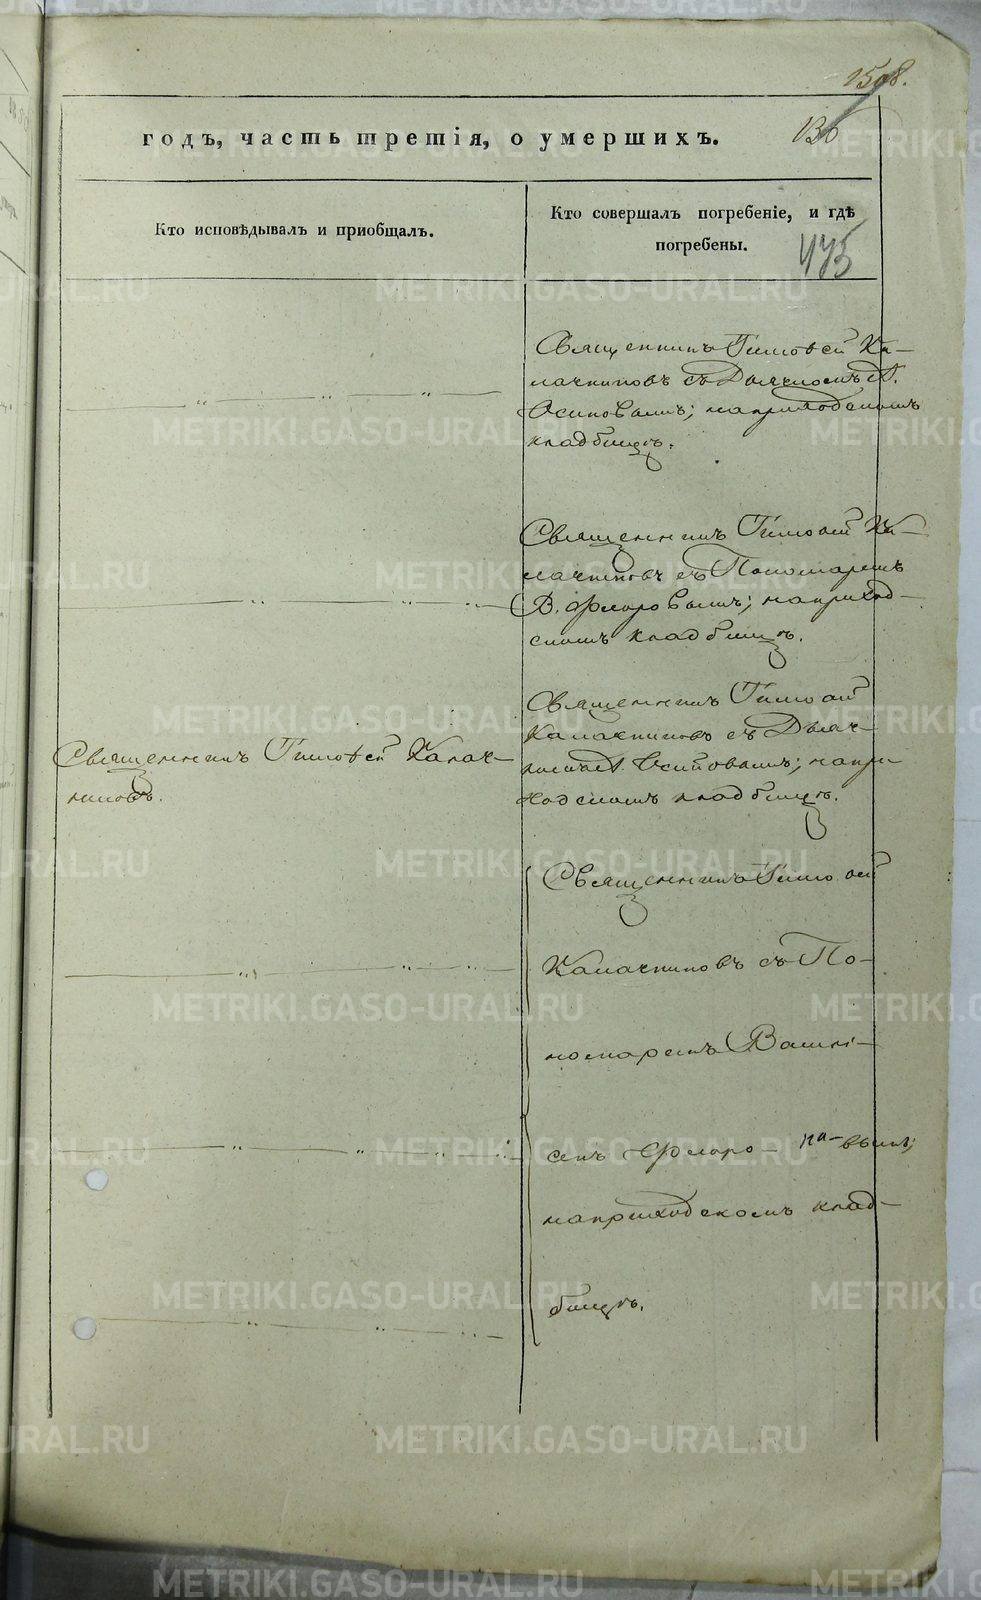 1508.
годъ, часть третія, о умершихъ.
136
Кто исповѣдывалъ и приобщалъ.
Кто совершалъ погребеніе, и гдѣ
погребены.
475
Священникъ Тимоѳей Ка-
лачниковъ съ Дьячкомъ А.
Осиповымъ; на приходскомъ
кладбищѣ.
Священникъ Тимоѳей Ка-
лачниковъ съ Пономаремъ
В. Флоровымъ; на приход-
скомъ кладбищѣ.
Священникъ Тимоѳей
Калачниковъ съ Дьяч-
комъ А. Осиповымъ; на при-
ходскомъ кладбищѣ.
Священникъ Тимоѳей Калач-
никовъ.
Священникъ Тимоѳей
Калачниковъ съ По-
номаремъ Васılі-
емъ Флоро-
вымъ;
на приходскомъ клад-
бищѣ.
METRIKI.GASO-URAL.RU